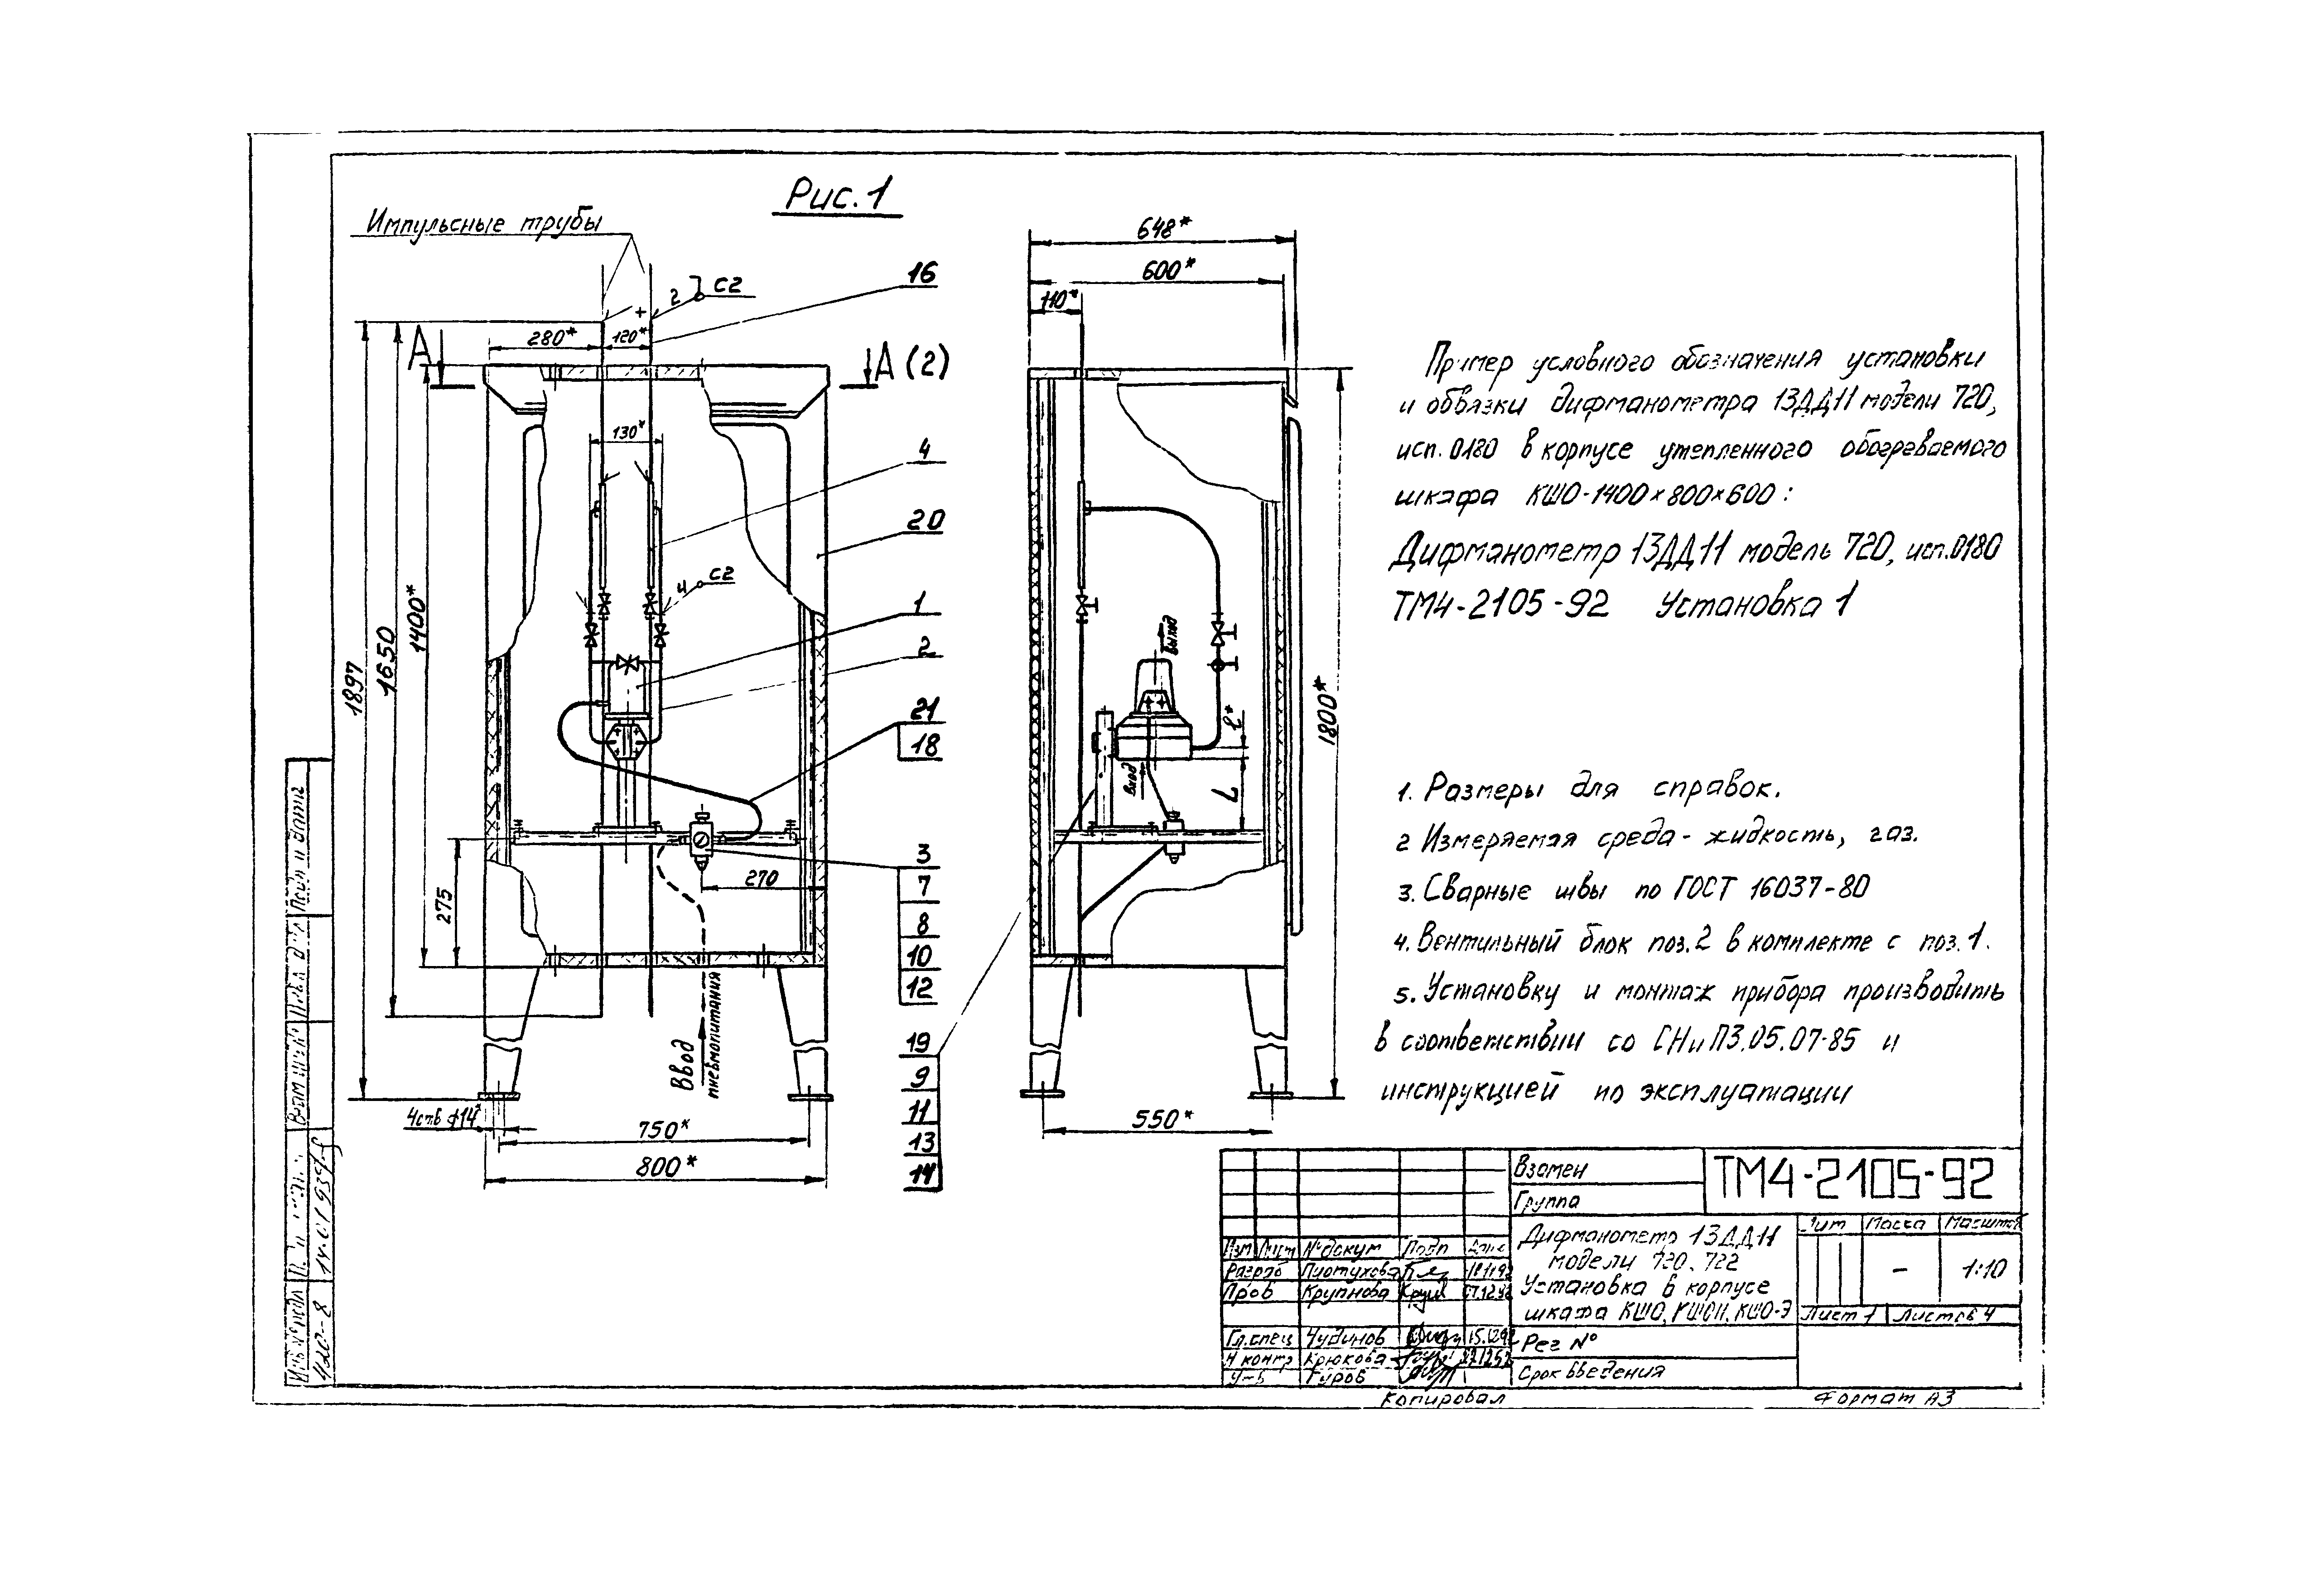 Рис.1
Импульсные трубы
16
2 С2
+
280*
120*
А
А (2)
130*
4
20
4 С2
1
2
21
18
1897
1650
1400*
275
270
3
7
8
10
12
19
9
11
13
14
Ввод
пневмопитания
4отв ф14*
750*
800*
648*
600*
110*
Выход
Вход
L
1800*
550*
Пример условного обозначения установки
и обвязки дифманометра 13ДД11 модели 720,
исп. 0180 в корпусе утепленного обогреваемого
шкафа КШО-1400×800×600:
Дифманометр 13ДД11 модель 720, исп.0180
ТМ4-2105-92 Установка 1
1. Размеры для справок.
2 Измеряемая среда - жидкость, газ.
3. Сварные швы по ГОСТ 16037-80
4. Вентильный блок поз.2 в комплекте с поз.1.
5. Установку и монтаж прибора производить
в соответствии со СНиП3.05.07-85 и
инструкцией по эксплуатации
Взамен
Группа
ТМ4-2105-92
Изм Лист № докум Подп Дата
Разраб
Пров Крупнова
Гл.спец Чудинов
Н контр Крюкова
Утв Гуров
Дифманометр 13ДД11
модели 720, 722
Установка в корпусе
шкафа КШО, КШОП, КШО-Э
Рег №
Срок введения
Лит Масса Масштаб
– 1:10
Лист 1 Листов 4
Копировал
Формат А3
Подп и дата
420-8